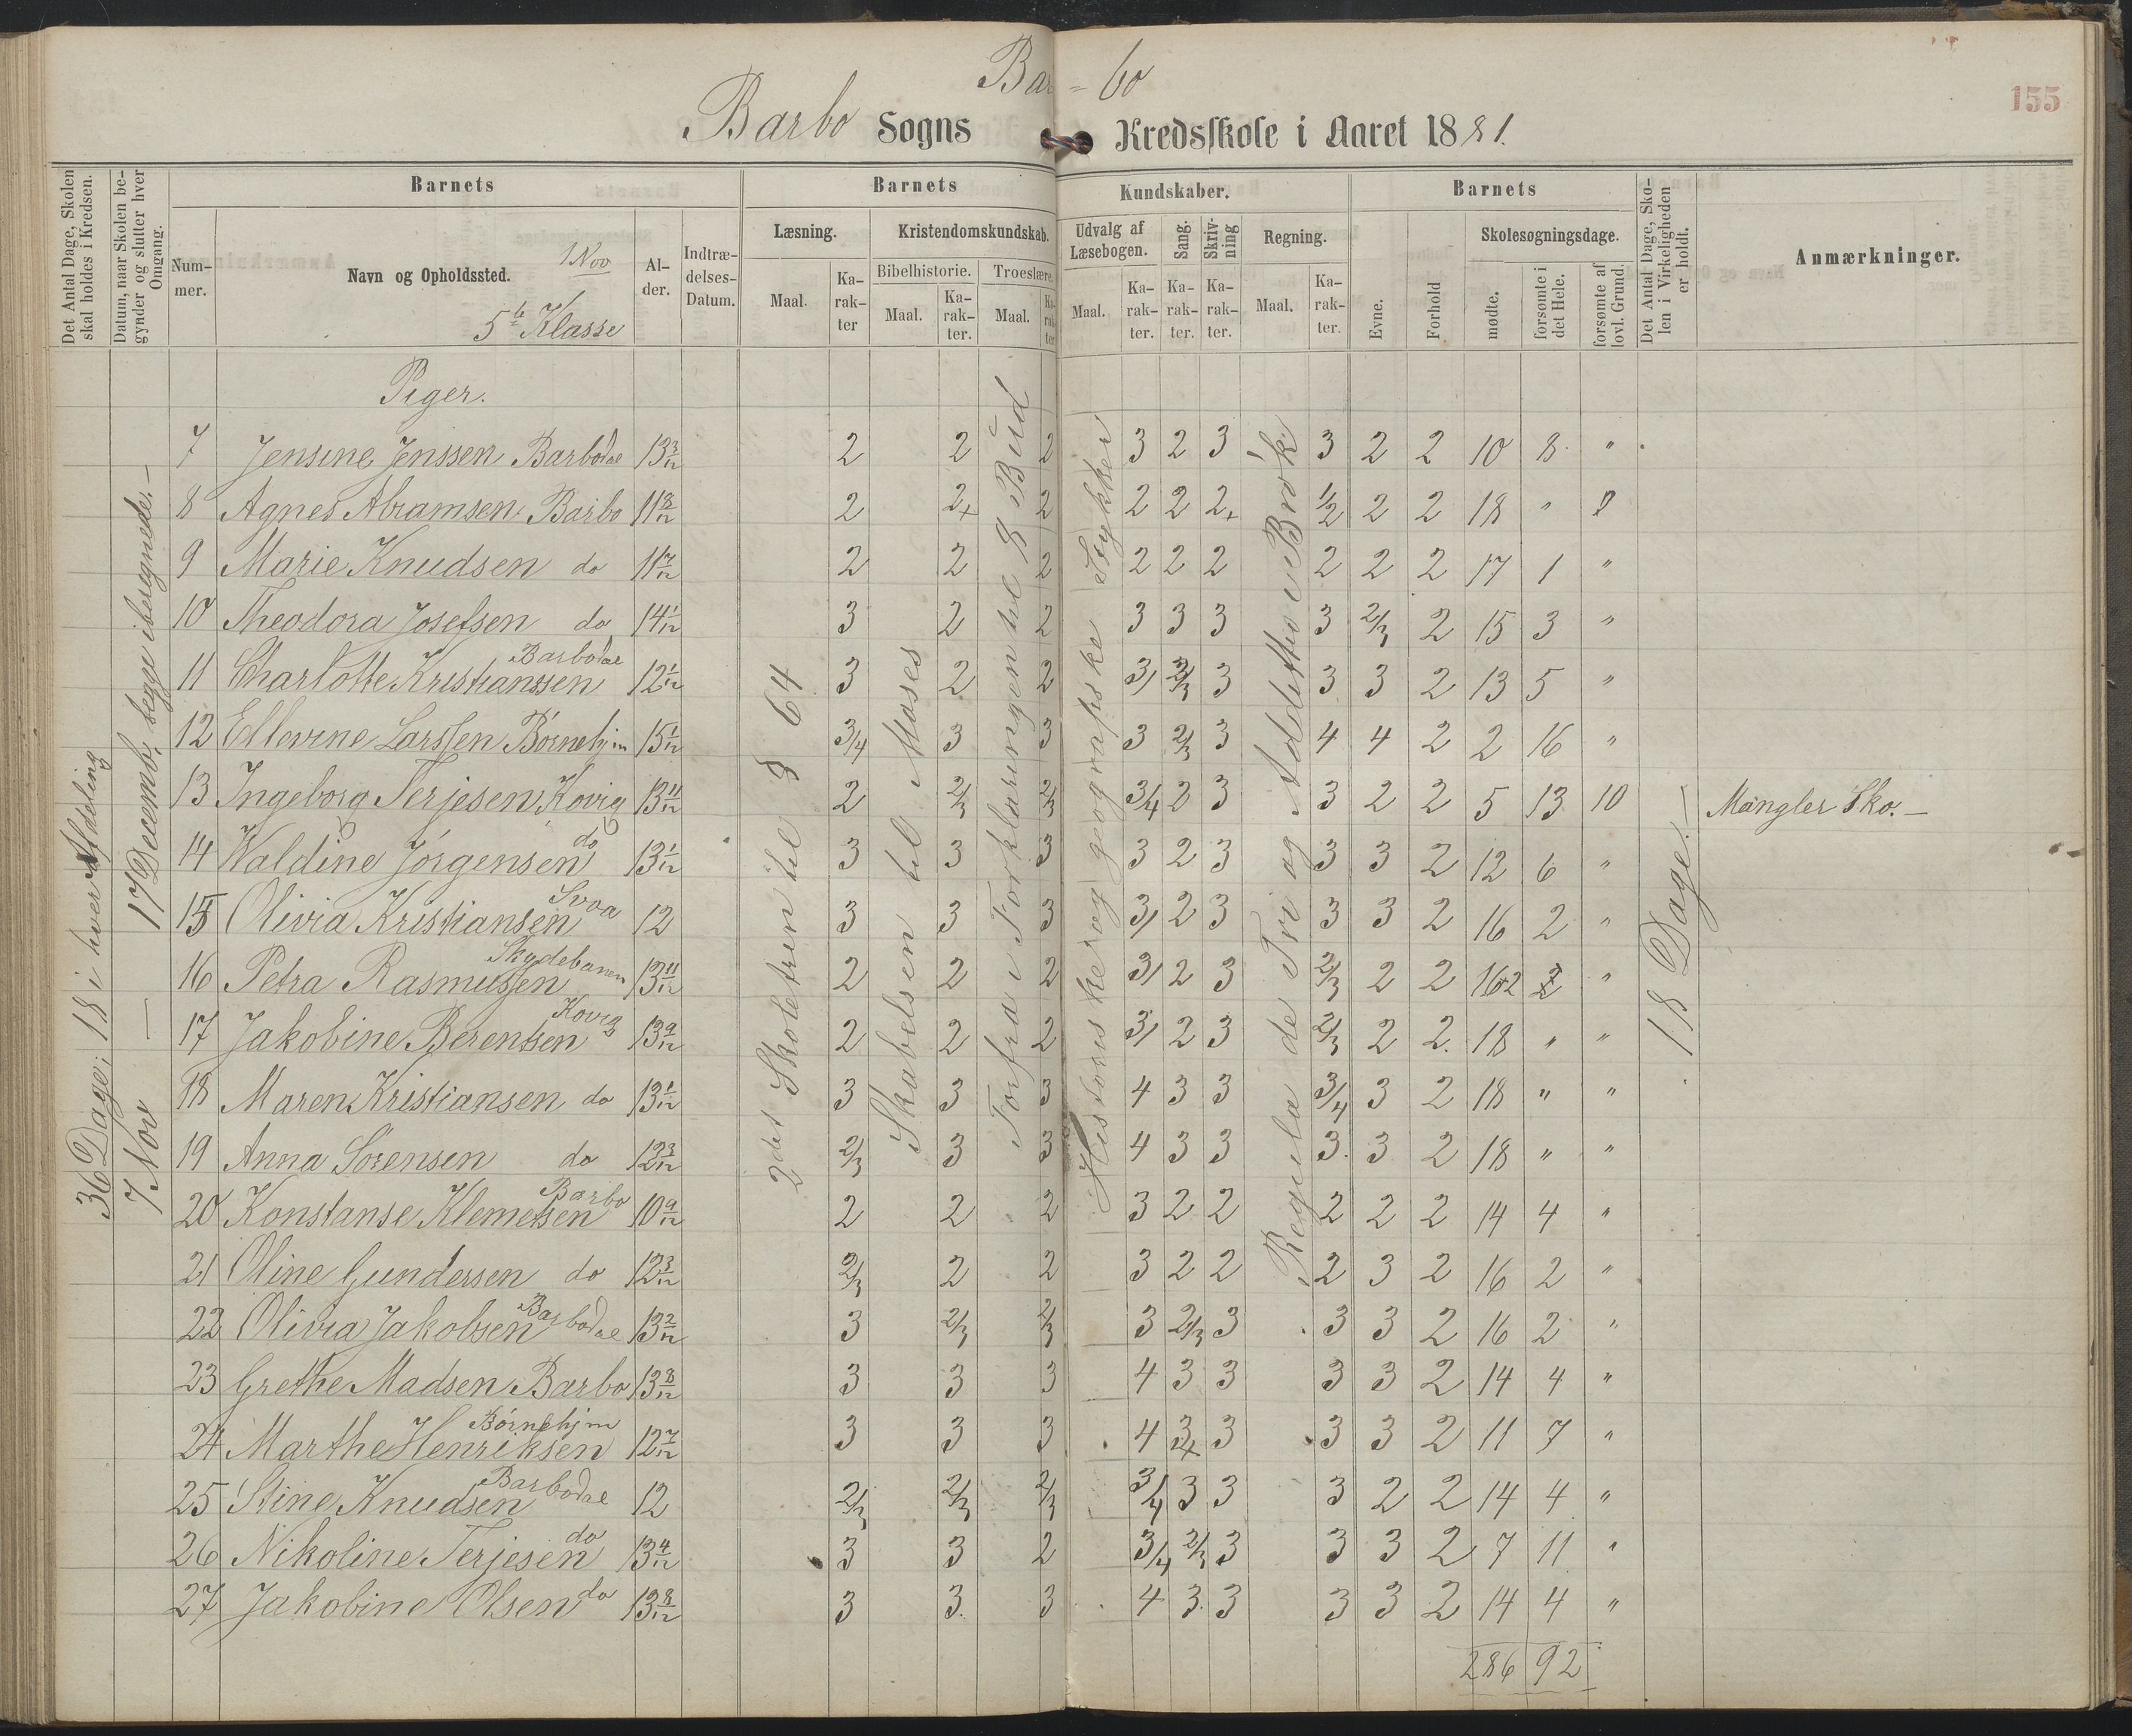 Bar = bo
155
Barbo Sogns Kredsskole i Aaret 1881.
Det Antal Dage, Skolen skal holdes i Kredsen.
Datum, naar Skolen begynder og slutter hver Omgang.
Barnets
Barnets
Kundskaber.
Barnets
Det Antal Dage, Skolen i Virkeligheden er holdt.
Anmærkninger.
Nummer.
Navn og Opholdssted.
1 Nov
5te Klasse
Alder.
Indtrædelses-Datum.
Læsning.
Kristendomskundskab.
Udvalg af Læsebogen.
Sang.
Skrivning
Regning.
Evne.
Forhold
Skolesøgningsdage.
Maal.
Karakter
Bibelhistorie.
Troeslære.
Maal.
Karakter.
Maal.
Karakter
Maal.
Karakter.
Karakter.
Karakter.
Maal.
Karakter.
mødte.
forsømte i det Hele.
forsømte af lovl. Grund.
36 Dage; 18 i hver Afdeling
7 Nov — 17 Decemb, begge iberegnede. —
2det Skoletrin til § 64
Skabelsen til Moses
Forfra i Forklaringen til 8 Bud
Historiske og geografiske Stykker
Regula de Tri og Addition i Brøk
18 Dage. —
Piger.
7 Jensine Jenssen Barbodal 13 3/12 2 2 2 3 2 3 3 2 2 10 8 "
8 Agnes Abramsen Barbo 11 8/12 2 2+ 2 2 2 2+ 1/2 2 2 18 "
9 Marie Knudsen do 11 7/12 2 2 2 2 2 2 2 2 2 17 1 "
10 Theodora Josefsen do 14 1/12 3 2 2 3 3 3 3 2/3 2 15 3 "
11 Charlotte Kristianssen Barbodal 12 1/12 3 2 2 3/ 2/3 3 3 3 2 13 5 "
12 Ellevine Larssen Børnehjm 15 1/12 3/4 3 3 3 2/3 3 4 4 2 2 16 "
13 Ingeborg Terjesen, Kovig 13 11/12 2 2/3 2/3 3/4 2 3 3 2 2 5 13 10 Mangler Sko. —
14 Waldine Jörgensen do 13 1/12 3 3 3 3 2 3 3 3 2 12 6 "
15 Olivia Kristiansen Svoa 12 3 3 3 3/ 2 3 3 3 2 16 2 "
16 Petra Rasmussen Skydebanen 13 11/12 2 2 2 3/ 2 3 2/3 2 2 16 2 "
17 Jakobine Berentsen Kovig 13 9/12 2 2 2 3/ 2 3 2/3 2 2. 18 " "
18 Maren Kristiansen do 13 1/12 3 3 3 4 3 3 3/4 3 2 18 " "
19 Anna Sörensen do 12 3/12 2/3 3 3 4 3 3 3. 3 2 18 " "
20 Konstanse Klemetsen Barbo 10 9/12 2 2 2 3 2 2 2 2 2 14 4 "
21 Oline Gundersen do 12 3/12 2/3 2 2 3 2 2 2 3 2 16 2 "
22 Olivia Jakobsen Barbodal 13 2/12 3 2/3 2/3 3 2/3 3 3 3 2 16 2 "
23 Grethe Madsen Barbo 13 8/12 3 3 3 4 3 3 3 3 2 14 4 "
24 Marthe Henriksen Børnehjm 12 7/12 3 3 3 4 3+ 3 3 3 2 11 7 "
25 Stine Knudsen Barbodal 12 2/3 2/3 2/3 3/4 3 3 3 2 2 14 4 "
26 Nikoline Terjesen do 13 4/12 3 3 2 3/4 2/3 3 3 3 2 7 11 "
27 Jakobine Olsen do 13 8/12 3 3. 3 4 3 3 3 3 2 14 4 "
286 92